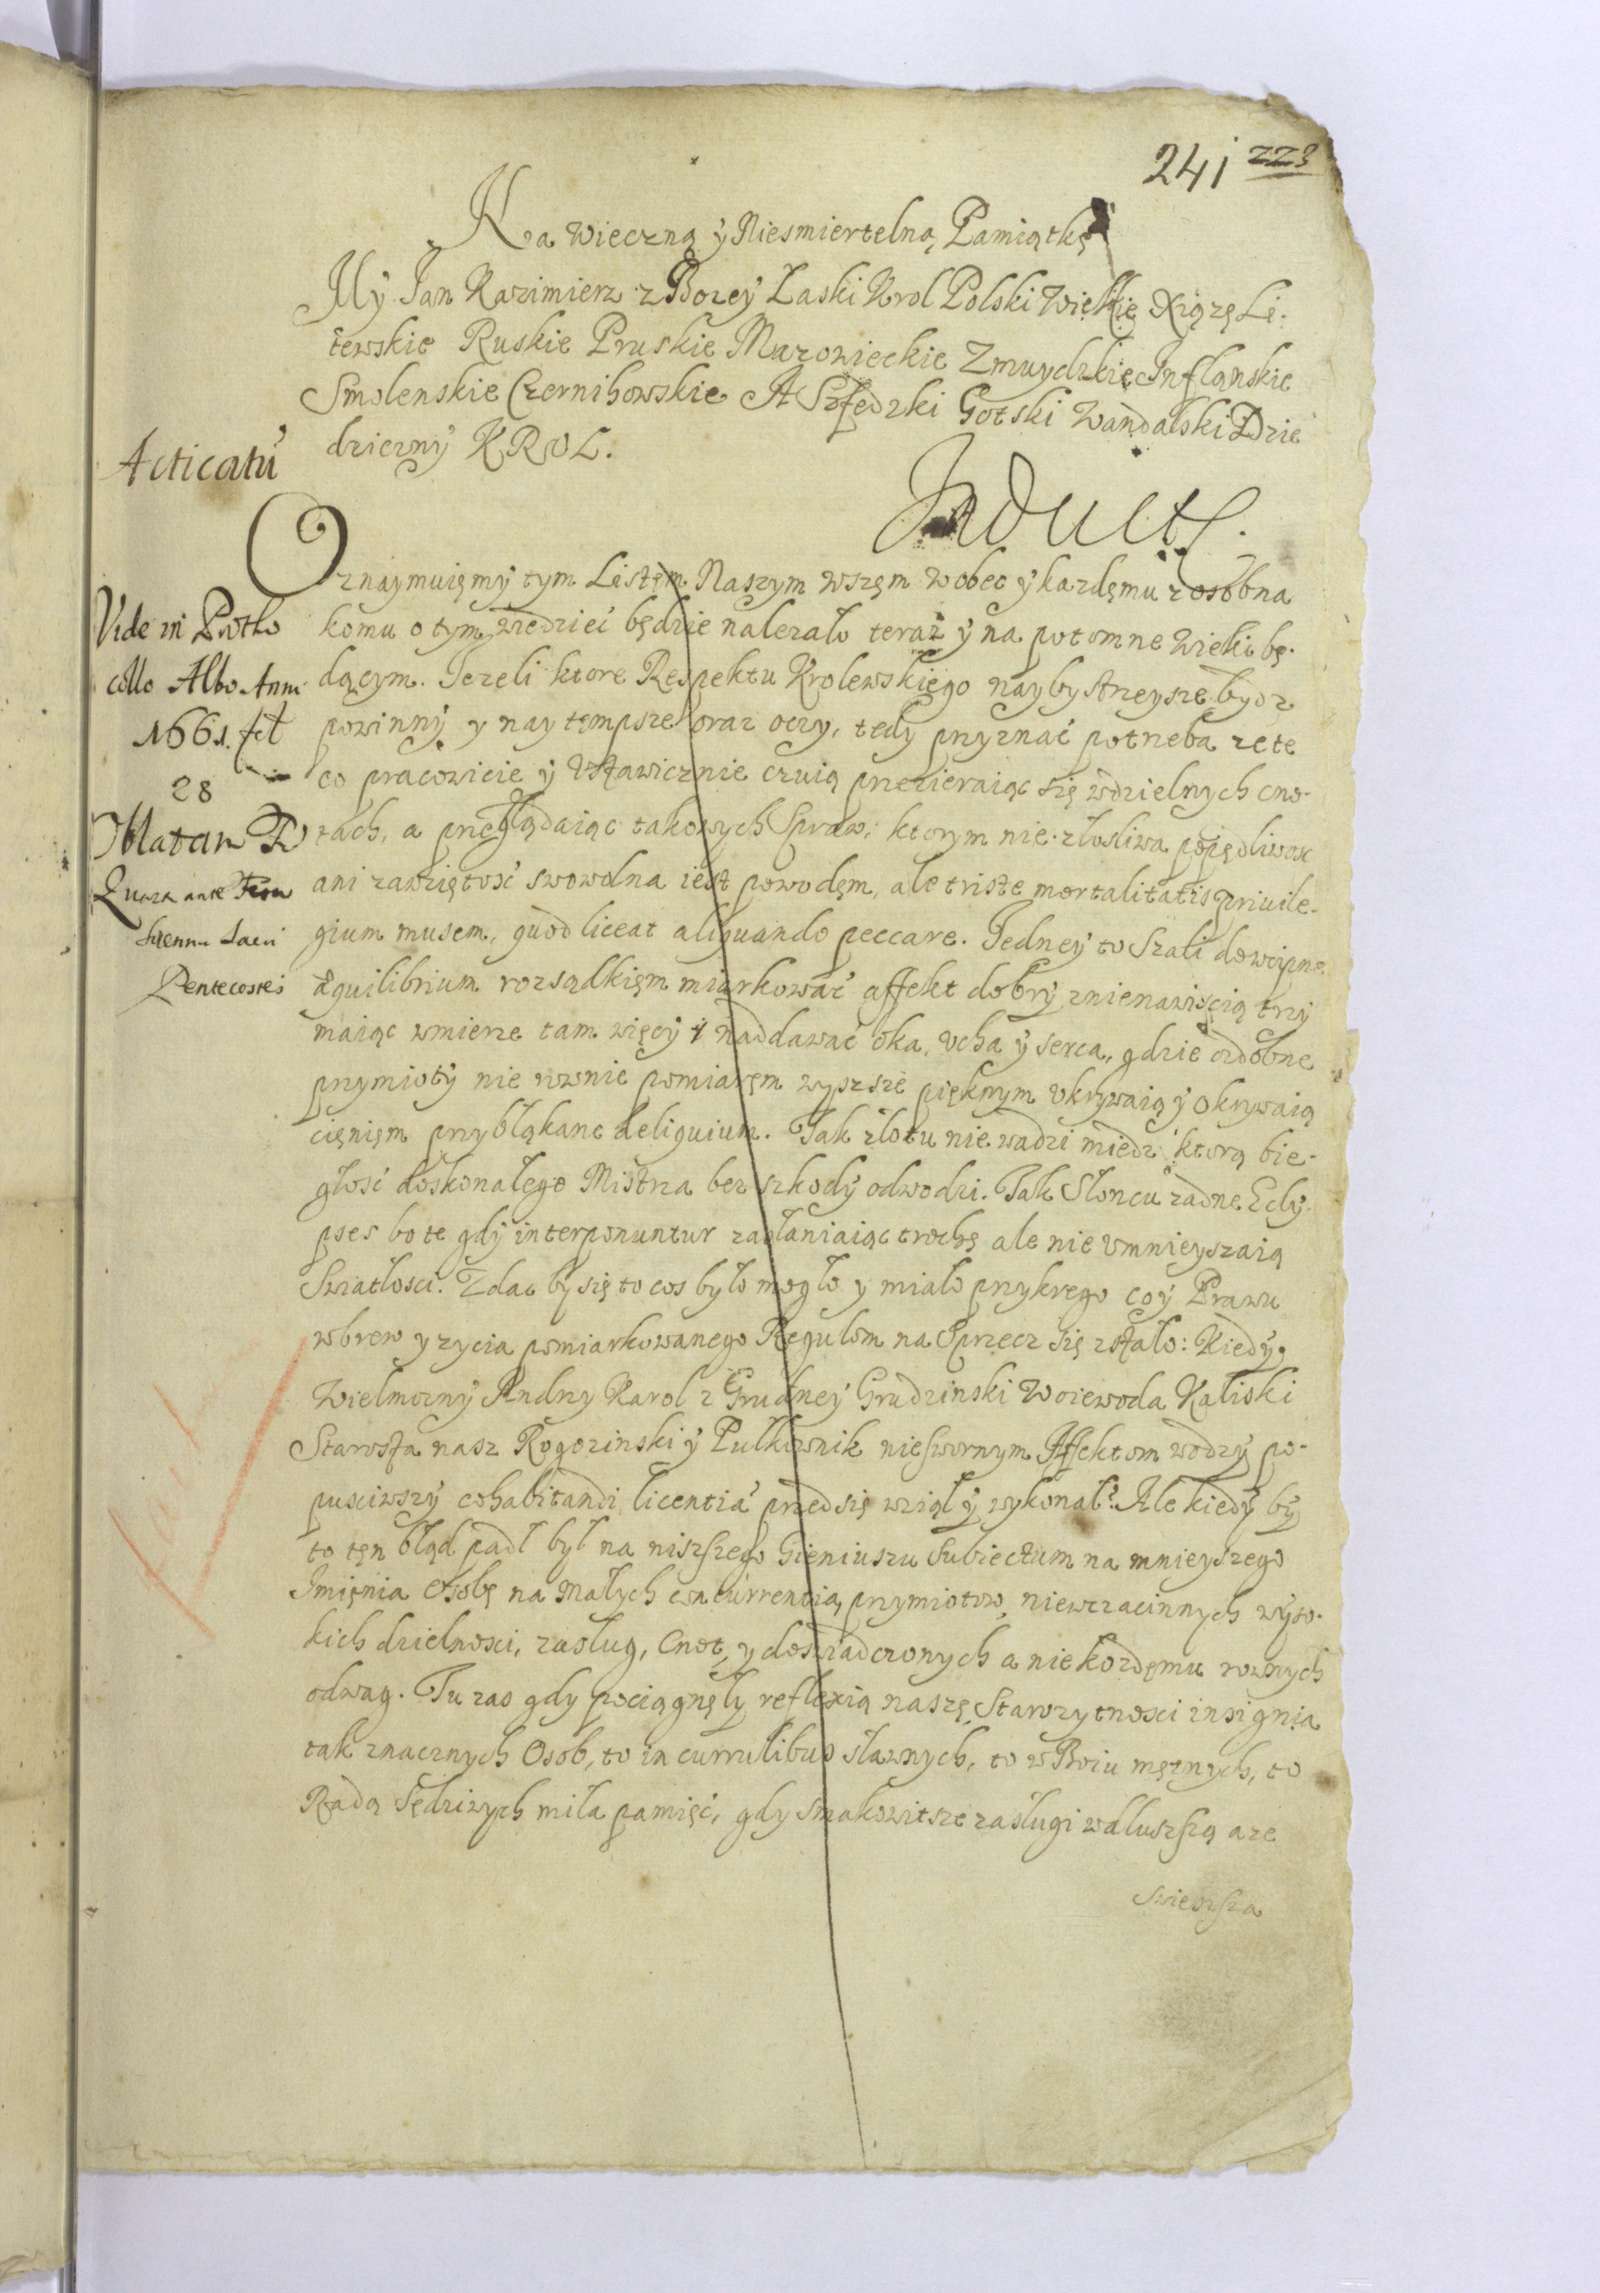 241 223
Na wieczną ÿ Niesmiertelną Pamiątkę
My Jan Kazimierz z Bozeÿ Łaski Krol Polski Wielkie Xiązę Li.
tewskie Ruskie Pruskie Mazowieckie Zmuydzkie Inflanskie
Smolenskie Czernihowskie A Szfedzki Gotski Wandalski Dzie
dzicznÿ KROL.
Acticatu
Induct
Oznaymuięmÿ tym Listęm Naszym wszęm wobec ÿ kazdęmu zosobna
komu o tym wiedzieć będzie nalezało teraz ÿ na potomne wieki bę.
dącym. Jezeli ktore Respektu Krolewskięgo naybystrzeysze bydz
powinnÿ y naytęmpsze oraz oczy, tedy przyznać potrzeba ze te
co pracowicie ÿ Vstawicznie czuią przezieraiąc się wdzielnych cno.
tach, a przeglądaiąc takowych Spraw, ktorym nie złosliwa popędliwosc
ani zawziętość swowolna iest powodęm, ale triste mortalitatis priuile.
gium musem, quod liceat aliquando peccare. Jedneÿ to Szali dowcipne
æquilibrium rozsądkięm miarkować affekt dobrÿ znienawiścią trzy
maiąc wmierze tam więcÿ naddawać oka, vcha ÿ serca, gdzie ozdobne
przymiotÿ nie rownie pomiaręm wyzsze pięknym vkrywaią ÿ okrywaią
cięnięm przybłąkane deliquium. Tak złotu nie wadzi miedz ktorą bie.
głość doskonałego Mistrza bez szkodÿ odwodzi. Tak Słoncu zadne Eclÿ.
pses bo te gdÿ interponuntur zasłaniaiąc trochę ale nie vmnieyszaią
Swiatłosci. Zdac bÿ się to cos było mogło y miało przykrego coÿ Prawu
wbrew y zycia pomiarkowanego Regulom na Sprzecz się zstało: Kiedÿ
Wielmoznÿ Andrzy Karol z Grudneÿ Grudzinski Woiewoda Kaliski
Starosta nasz Rogozinski ÿ Pułkownik niesfornym Affektom wodzÿ po.
pusciwszÿ cohabitandi licentia przed się wziąłÿ wykonał. Ale kiedÿ bÿ
to tęn błąd padł był na niszszego Gieniuszu Subiectum na mnieyszego
Imięnia Osobę na Małych concurrentią przymiotow, wyso.
kich dzielnosci, zasług, Cnot, y doswiadczonych a nie kozdęmu rownych
odwag. Tu zas gdy pociągnęły reflexią naszę Starozytnosci insignia
tak znacznych Osob, to in currulibus sławnych, to w Boiu męznych, to
Radą Sędziwych miła pamięć, gdy smakowitsze zasługi wdłuszszą aze
Swiezsza
Vide in Protho
collo Albo Anni
1661. fol
28
Oblatam F
Quarta ante Fest
Pentecostes